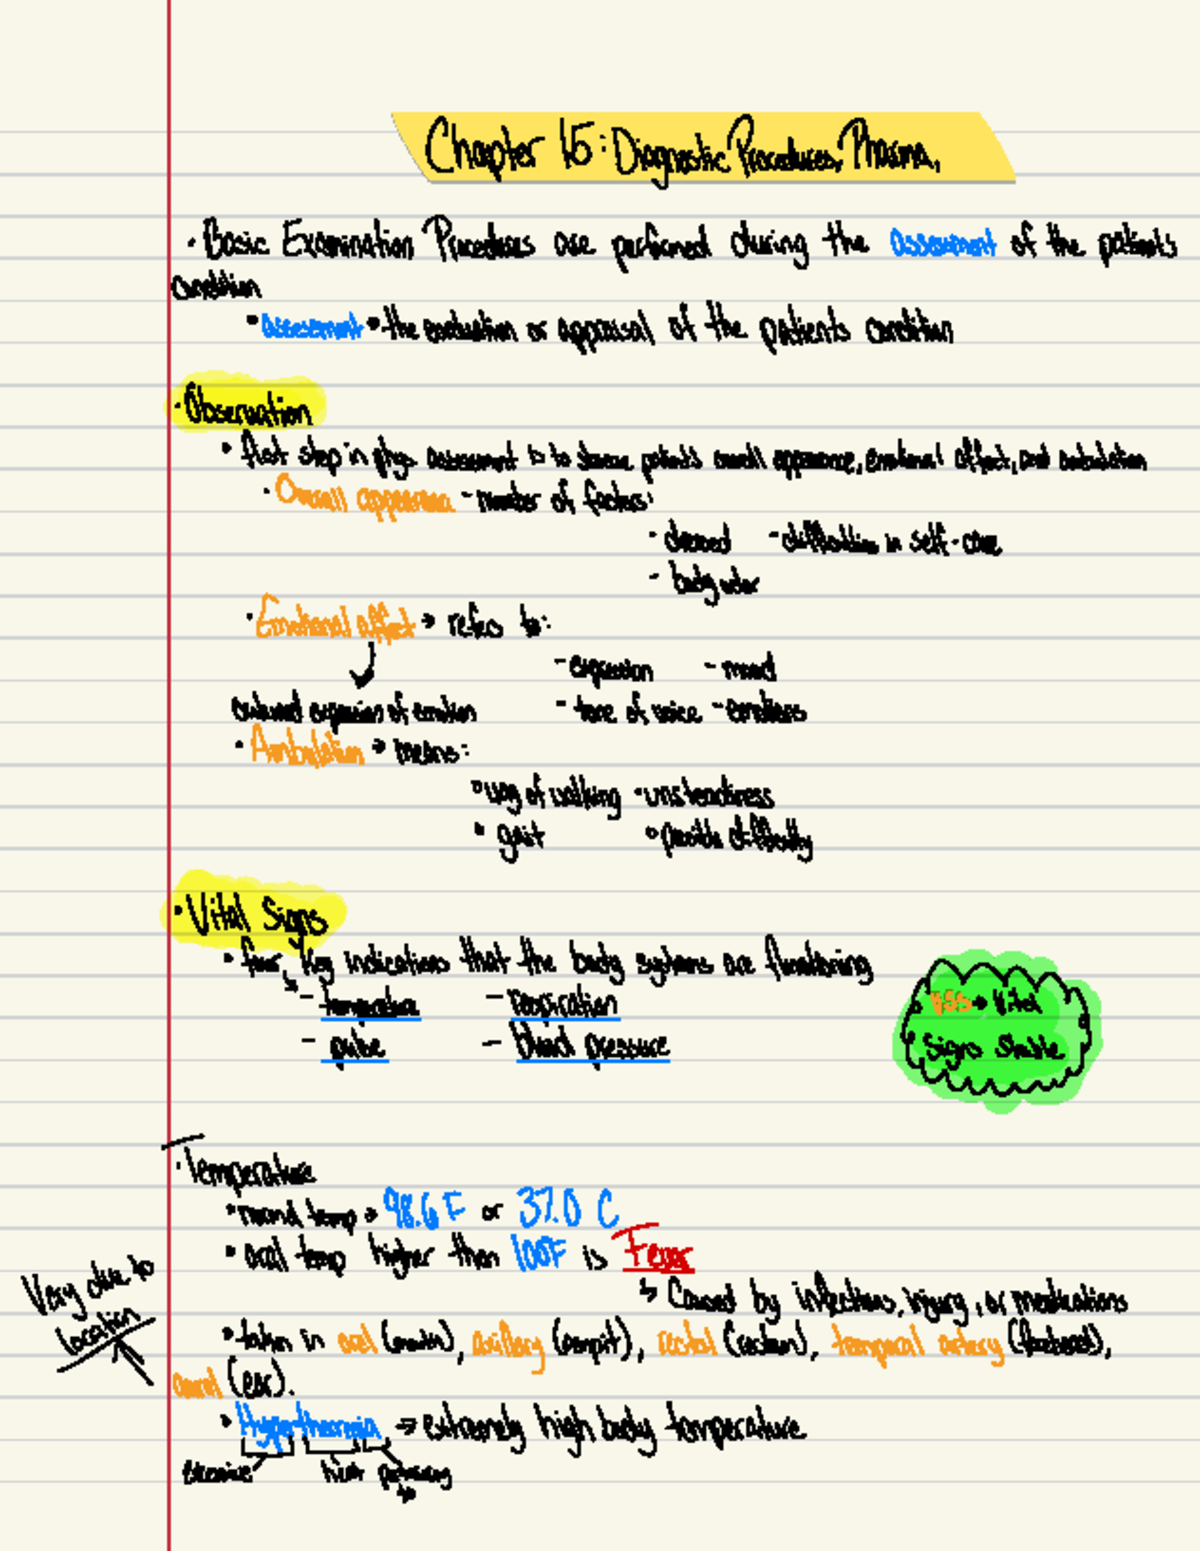 Chapter 15: Diagnostic Procedures, Pharma.
· Basic Examination Procedures are performed during the assessment of the patients
condition
• assessment • the evaluation or appraisal of the patients condition
· Observation
• first step in phys assessment is to observe patients overall appearance, emotional affect, and ambulation
· Overall appearance - number of factors:
- dressed - difficulties in self-care
- body odor
· Emotional affect → refers to:
- expression - mood
outward expression of emotion - tone of voice - emotions
· Ambulation → means:
• way of walking - unsteadiness
• gait • possible difficulty
· Vital Signs
• four, key indications that the body systems are functioning
- temperature - respiration
VSS → Vital
Signs Stable
- pulse - blood pressure
· Temperature
• normal temp → 98.6 F or 37.0 C
• oral temp higher then 100F is Fever
↳ Caused by infections, injury, or medications
Vary due to
location
• taken in oral (mouth), axillary (armpit), rectal (rectum), temporal artery (forehead),
aural (ear).
• Hyperthermia → extremely high body temperature
excessive heat pertaining
to